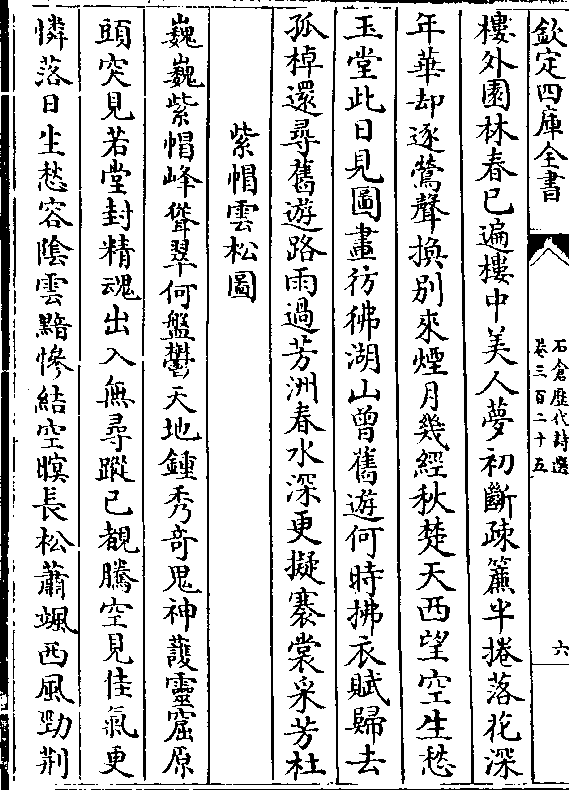 欽定四庫全書
石倉歷代詩選
卷三百二十五
六
樓外園林春已遍樓中美人夢初斷疎簾半捲落花深
年華却逐鶯聲換別來煙月幾經秋楚天西望空生愁
玉堂此日見圖畫彷彿湖山曾舊遊何時拂衣賦歸去
孤棹還尋舊遊路雨過芳洲春水深更擬褰裳采芳杜
紫帽雲松圖
巍巍紫帽峰聳翠何盤鬱天地鍾秀奇鬼神護靈窟原
頭突見若堂封精魂出入無尋蹤已覩騰空見佳氣更
憐落日生愁容陰雲黯慘結空暝長松蕭颯西風勁荆